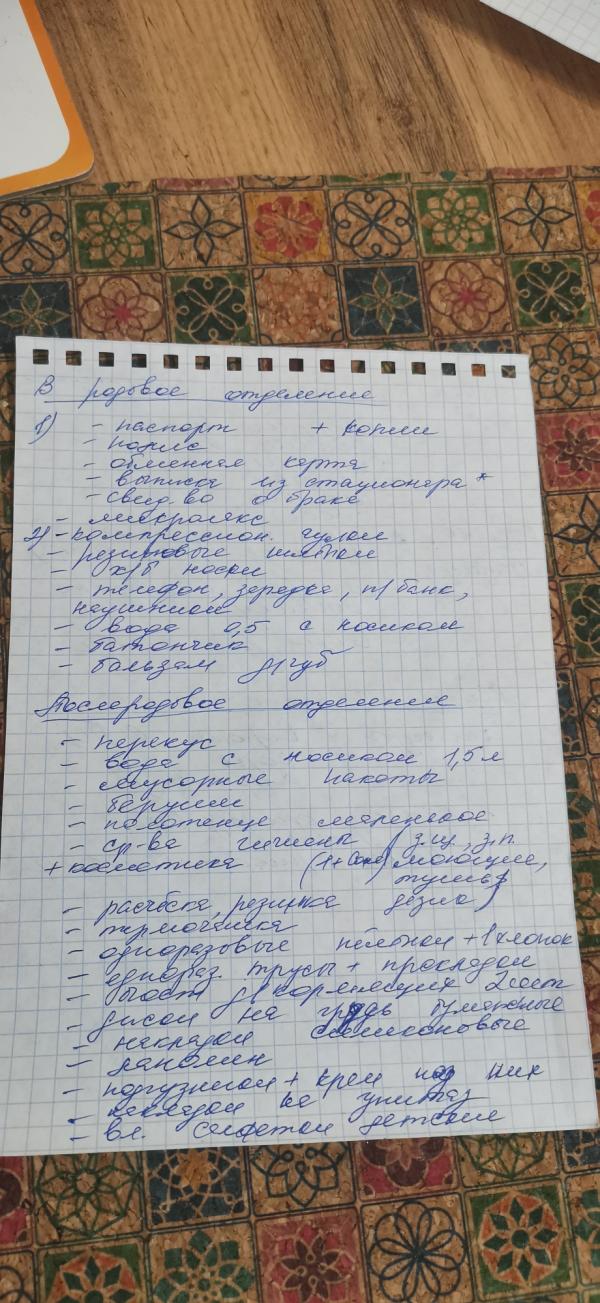 В родовое отделение
1) - паспорт + копии
- полис
- обменная карта
- выписка из стационара *
- свид.во о браке
- микролакс
2) - компрессион. чулки
- резиновые шлёпки
- х/б носки
- телефон, зарядка, п/банк,
наушники
- вода 0,5 с носиком
- батончик
- бальзам д/губ
Послеродовое отделение
- перекус
- вода с носиком 1,5 л
- мусорные пакеты
- беруши
- полотенце маленькое
- ср-ва гигиены (з.щ, з.п.
+ косметика моющие,
тушь,
- расчёска, резинка дезик)
- термочашка
- одноразовые пелёнки + 1 хлопок
- однораз. трусы + прокладки
- бюст д/кормящих 2шт
- диски на грудь бумажные
- накладки силиконовые
- ланолин
- подгузники + крем под них
- накладки на унитаз
- вл. салфетки детские